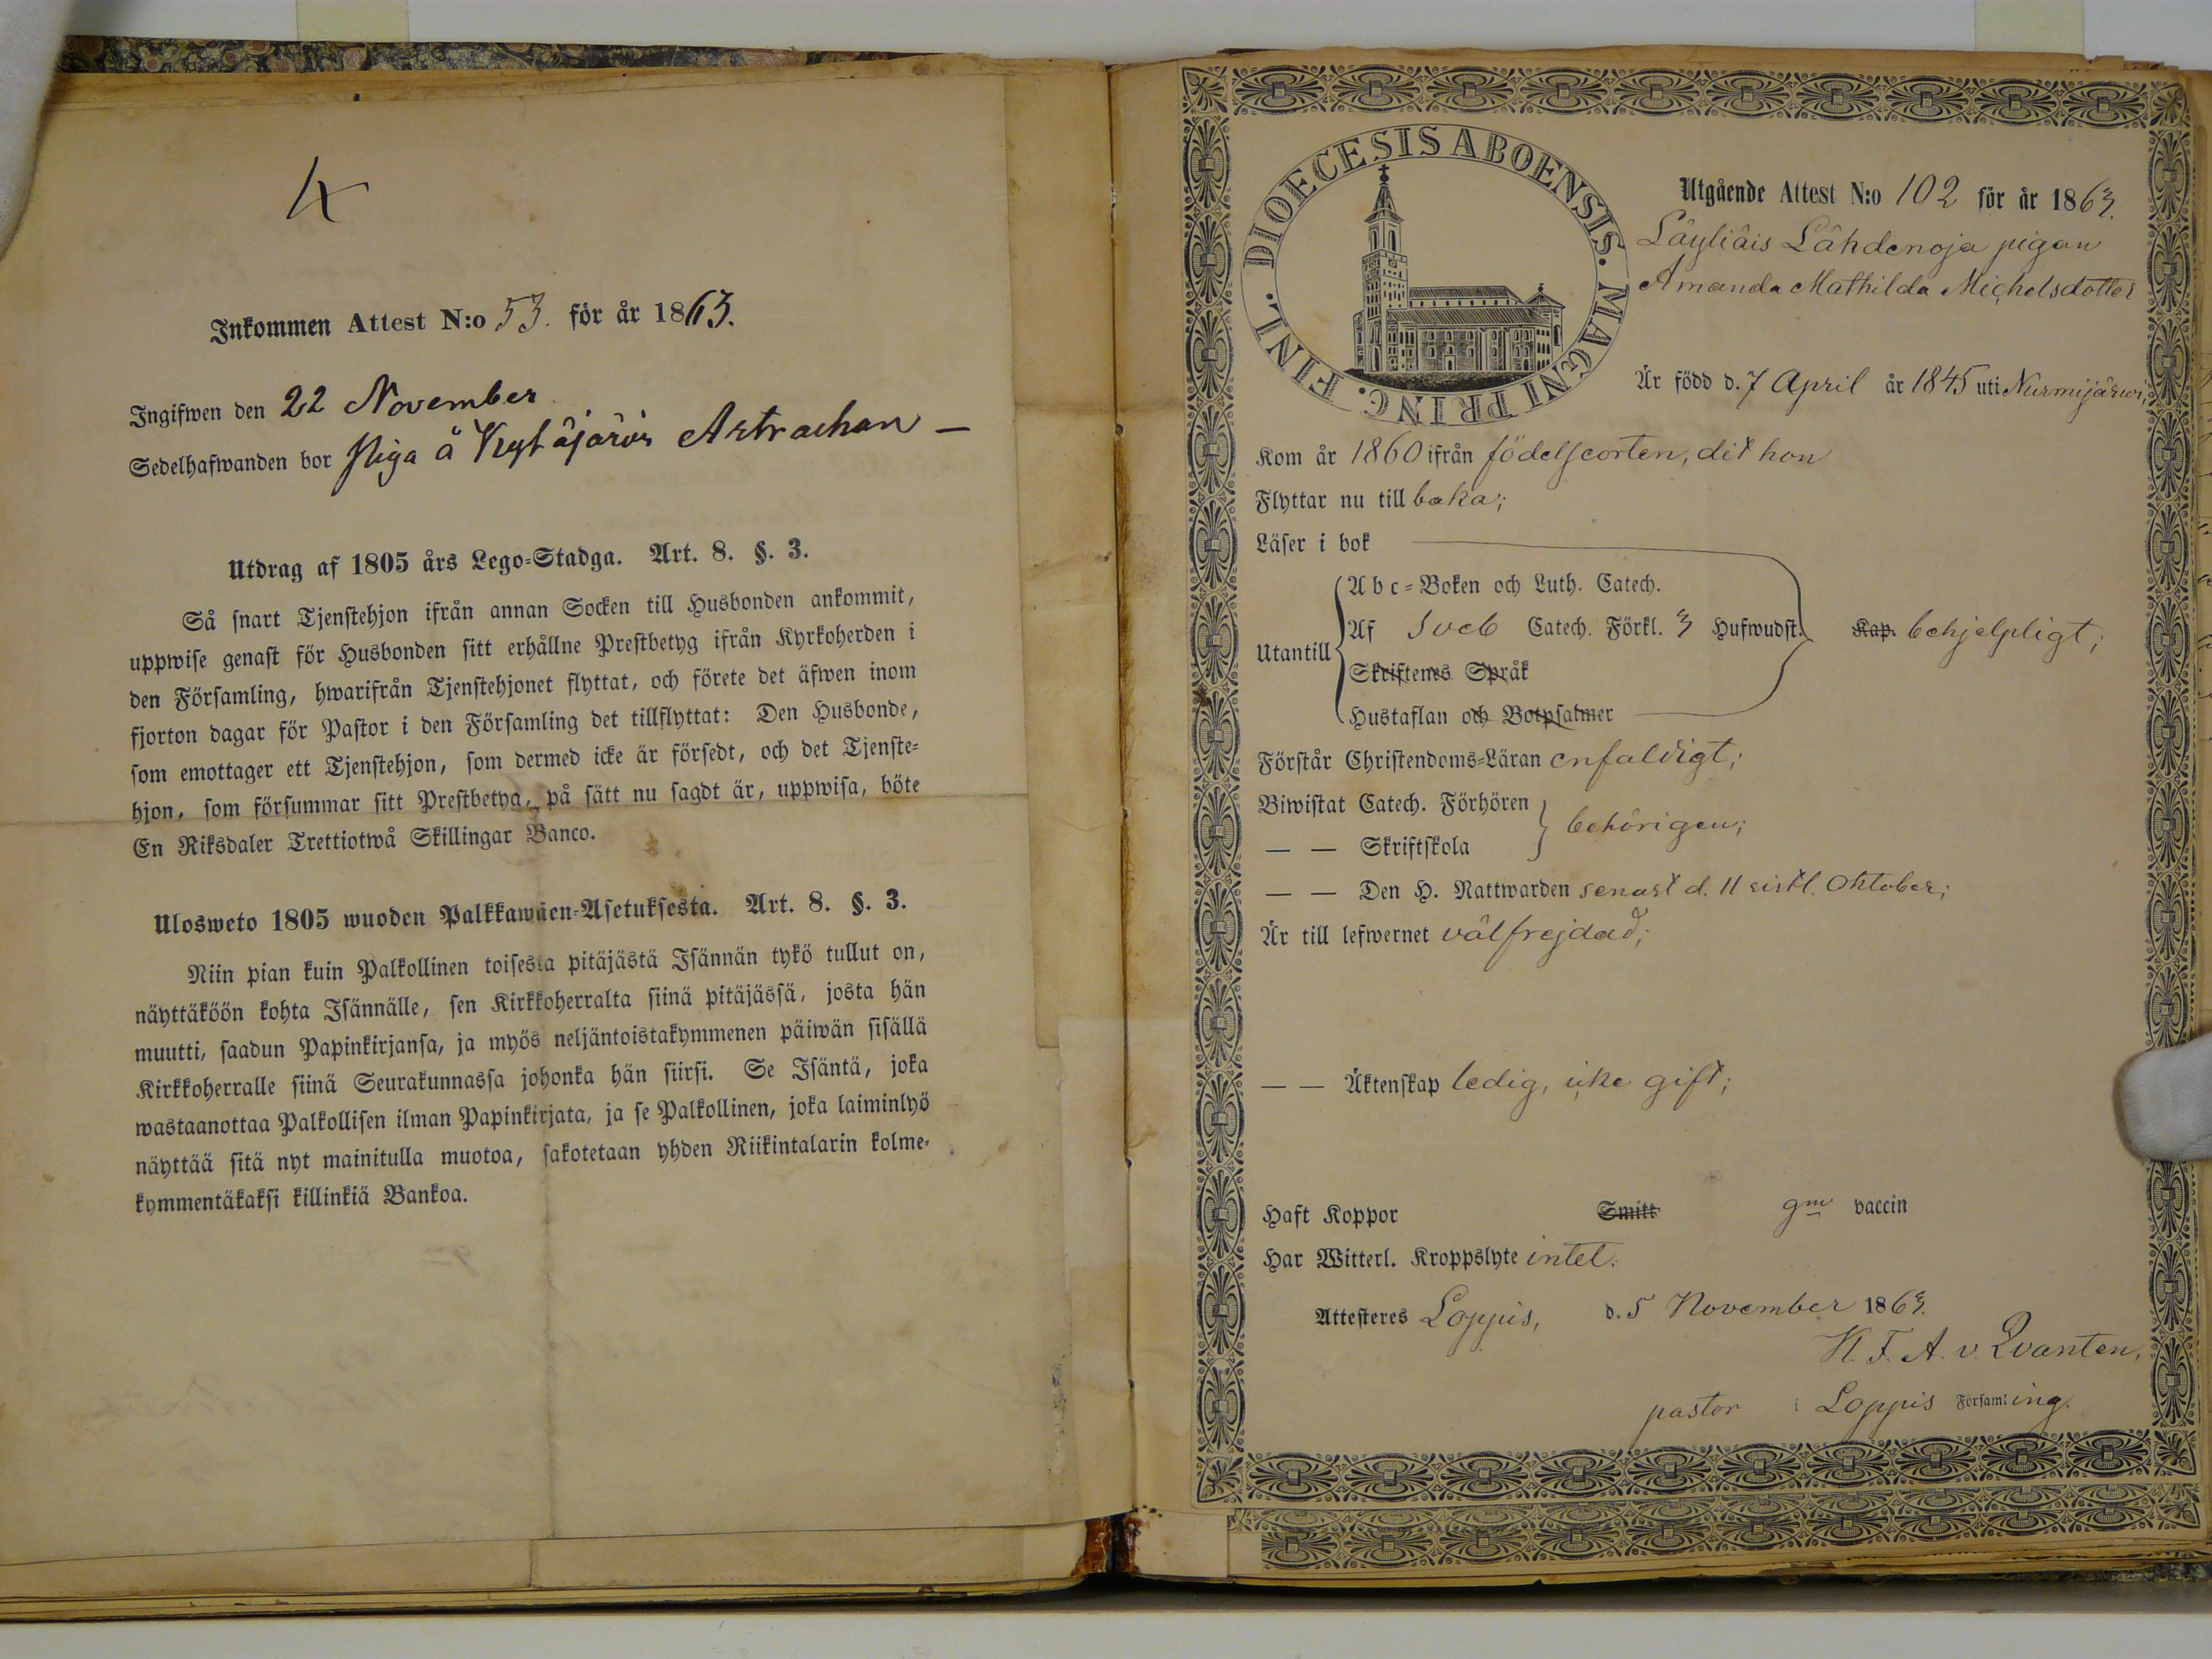 Inkommen Attest N:o 53. för år 1863.
Ingifwen den 22 November
Sedelhafwanden bor Piga å Kytäjärvi Astrachan —
Utdrag af 1805 års Lego-Stadga. Art. 8. §. 3.
Så snart Tjenstehjon ifrån annan Socken till Husbonden ankommit,
uppwise genast för Husbonden sitt erhållne Prestbetyg ifrån Kyrkoherden i
den Församling, hwarifrån Tjenstehjonet flyttat, och förete det äfwen inom
fjorton dagar för Pastor i den Församling det tillflyttat: Den Husbonde,
som emottager ett Tjenstehjon, som dermed icke är försedt, och det Tjenste-
hjon, som försummar sitt Prestbetyg, på sätt nu sagdt är, uppwisa, böte
En Riksdaler Trettiotwå Skillingar Banco.
Ulosweto 1805 wuoden Palkkawäen-Asetuksesta. Art. 8. §. 3.
Niin pian kuin Palkollinen toisesta pitäjästä Isännän tykö tullut on,
näyttäköön kohta Isännälle, sen Kirkkoherralta siinä pitäjässä, josta hän
muutti, saadun Papinkirjansa, ja myös neljäntoistakymmenen päiwän sisällä
Kirkkoherralle siinä Seurakunnassa johonka hän siirsi. Se Isäntä, joka
wastaanottaa Palkollisen ilman Papinkirjata, ja se Palkollinen, joka laiminlyö
näyttää sitä nyt mainitulla muotoa, sakotetaan yhden Riikintalarin kolme-
kymmentäkaksi killinkiä Bankoa.
DIOECESIS ABOENSIS. MAGNI PRINC. FINL.
Utgående Attest N:o 102 för år 1863.
Läyliäis Lähdenoja pigan
Amanda Mathilda Michelsdotter
Är född d. 7 April år 1845 uti Nurmijärwi;
Kom år 1860 ifrån födelseorten, dit hon
Flyttar nu till baka;
Läser i bok
Utantill
Abc-Boken och Luth. Catech.
Af Sveb Catech. Förkl. 3 Hufwudst. Kap. behjelpligt;
Skriftenes Språk
Hustaflan och Botpsalmer
Förstår Christendoms-Läran enfaldigt;
Biwistat Catech. Förhören
behörigen;
— — Skriftskola
— — Den H. Nattwarden senast d. 11 sistl. Oktober;
Är till lefwernet välfrejdad;
— — Äktenskap ledig, icke gift;
Haft Koppor Smitt gm vaccin
Har Witterl. Kroppslyte intet.
Attesteres Loppis, d. 5 November 1863.
K. F. A. v. Qvanten,
pastor i Loppis Församling.